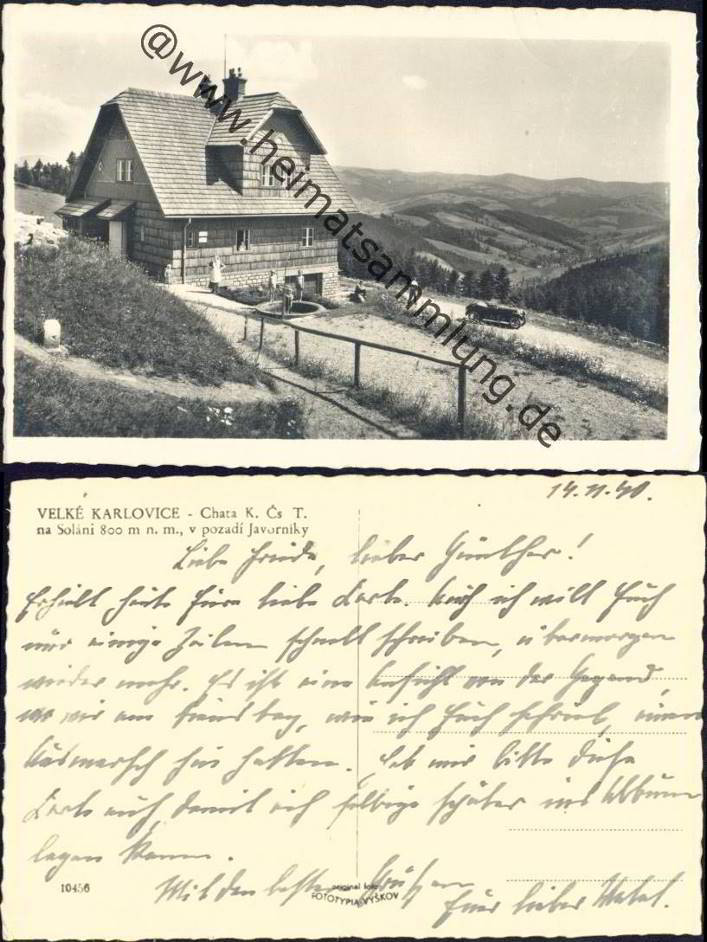 @www.heimatsammlung.de
14.11.40.
VELKÉ KARLOVICE - Chata K. Čs T.
na Soláni 800 m n. m., v pozadí Javorníky
Liebe Friede, lieber Günther!
Erhielt heute Eure liebe Karte. Auch ich will Euch
nur einige Zeilen schnell schreiben, übermorgen
wieder mehr. Es ist eine Ansicht von der Gegend,
wo wir am Dienstag, wie ich Euch schrieb, einen
hin hatten. Heb mir bitte diese
Karte auf, damit ich selbige später ins Album
legen kann.
10456
Mit den besten Grüßen
original foto
FOTOTYPIA-VYŠKOV
Euer lieber